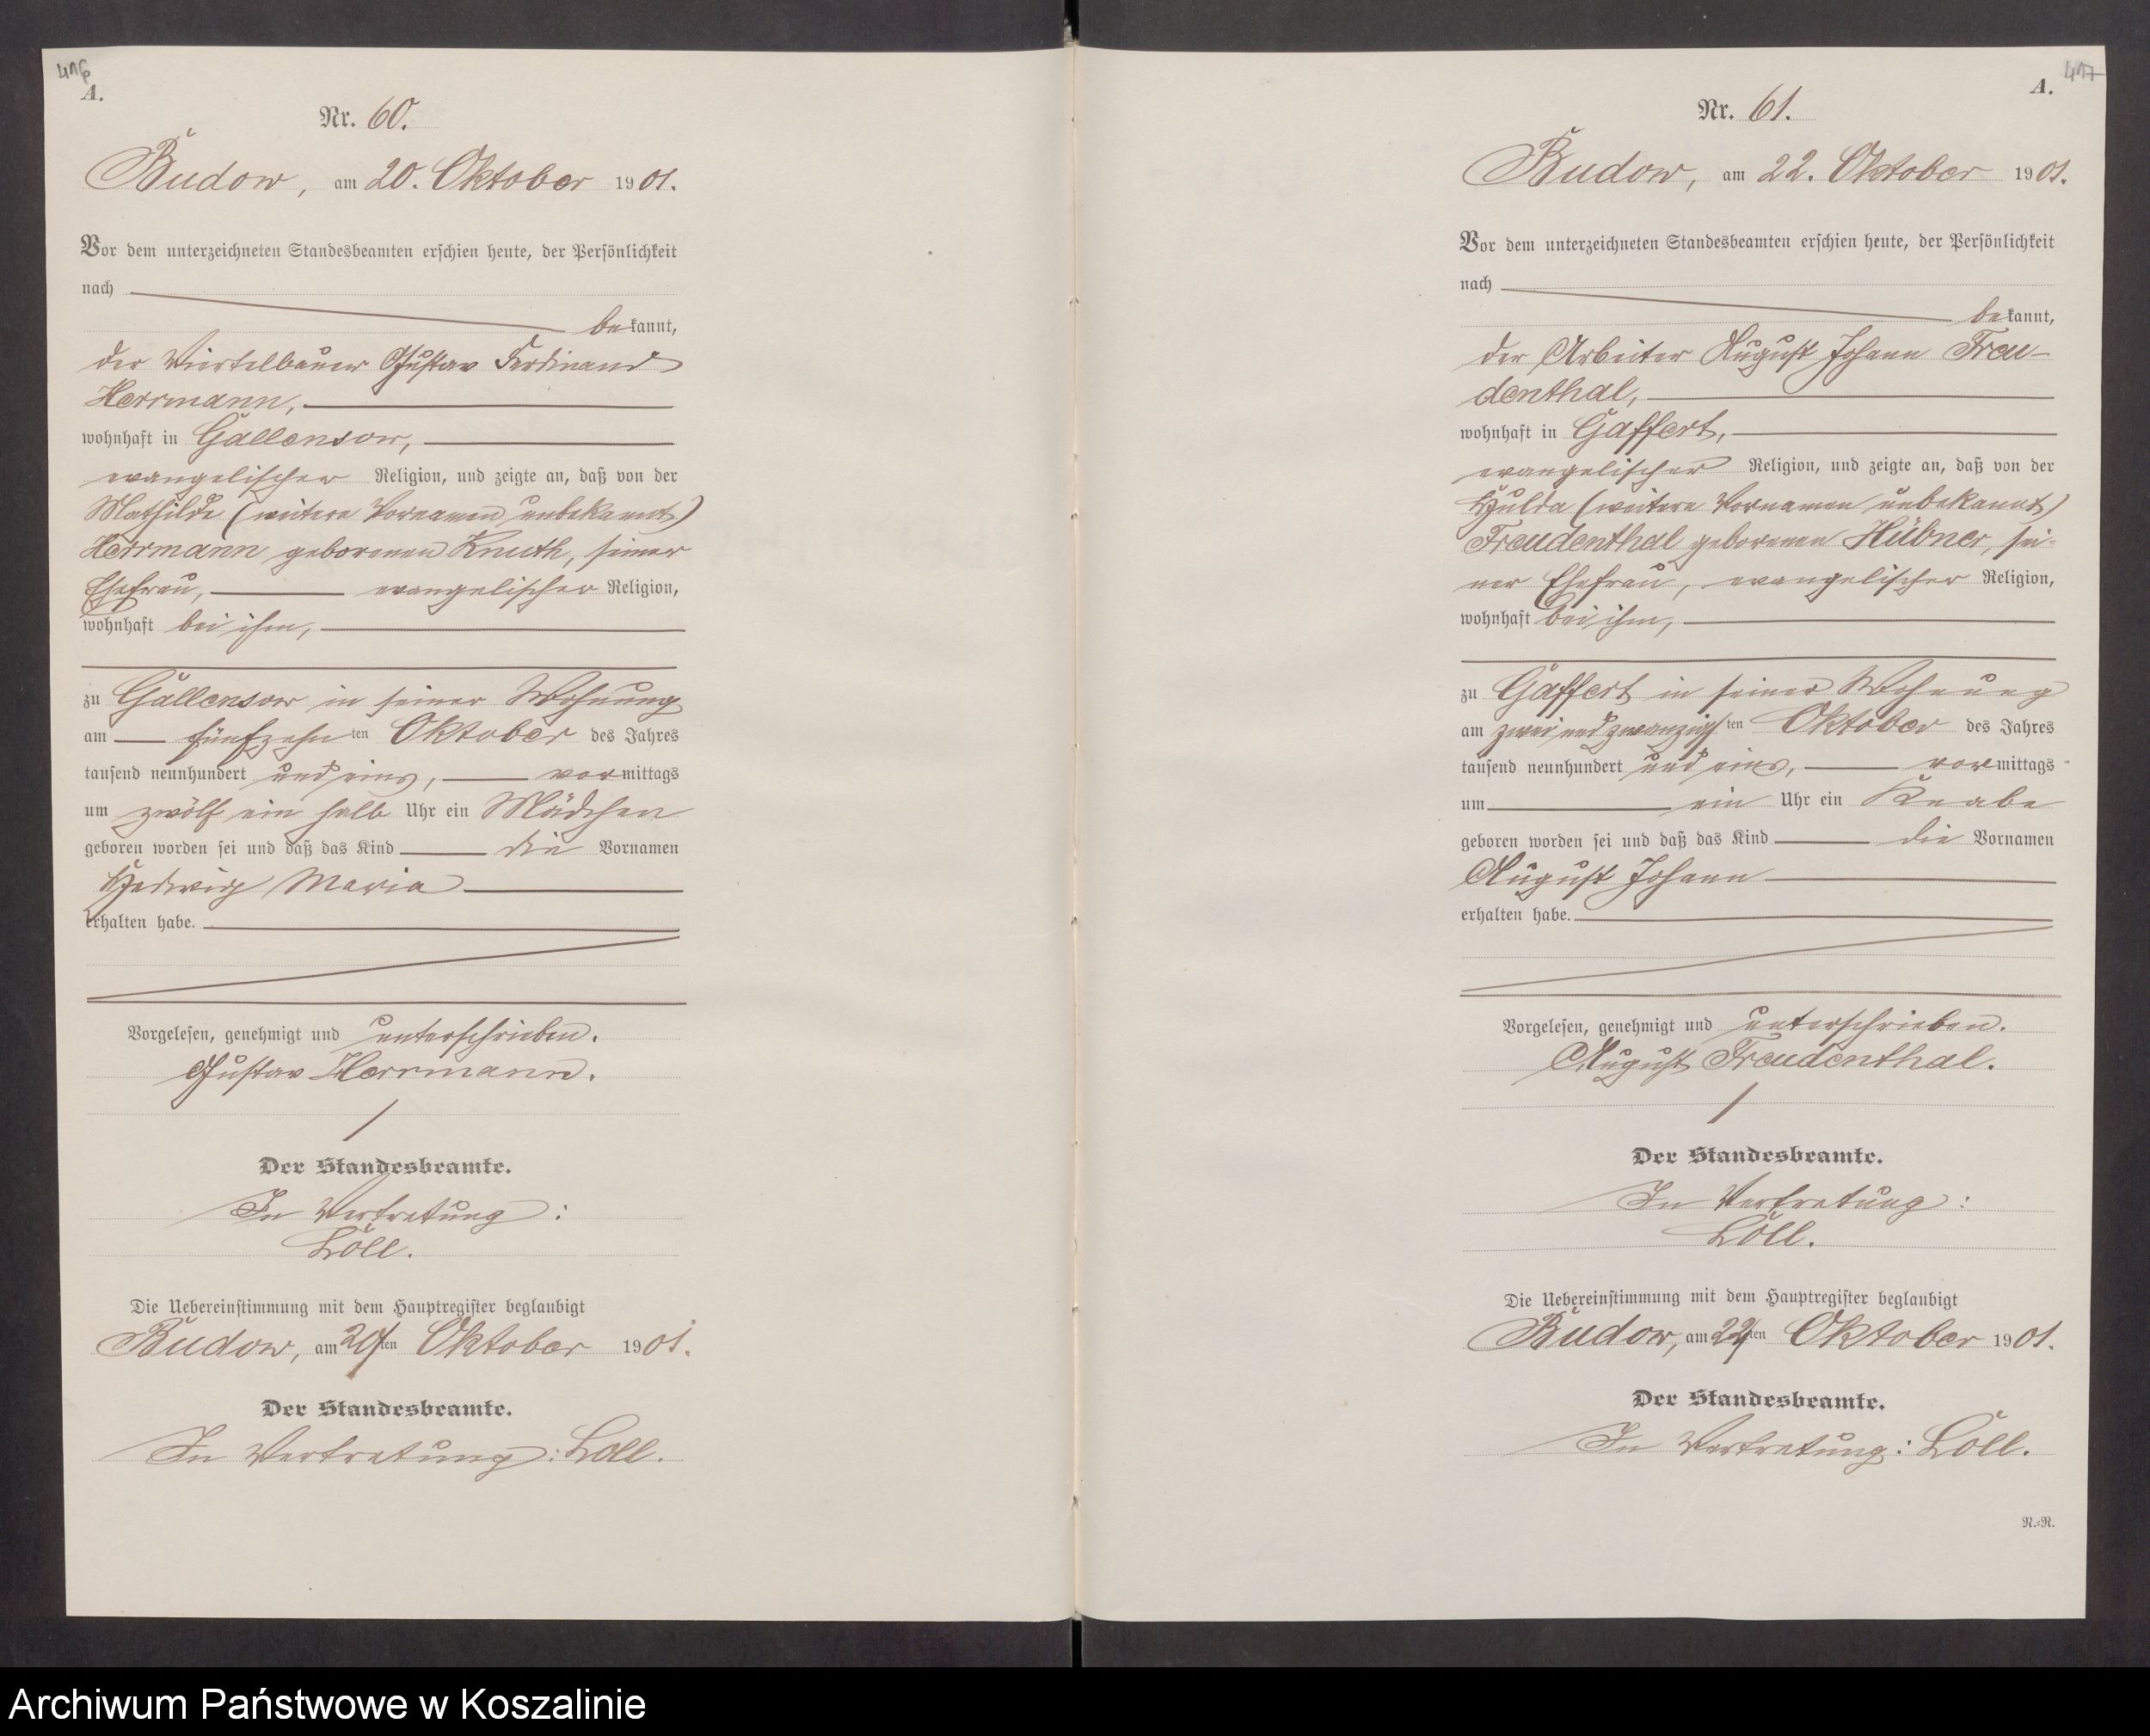 416
A.
Nr. 60.
Budow, am 20. Oktober 1901.
Vor dem unterzeichneten Standesbeamten erschien heute, der Persönlichkeit
nach
bekannt,
der Viertelbauer Gustav Ferdinand
Herrmann,
wohnhaft in Gallensow,
evangelischer Religion, und zeigte an, daß von der
Mathilde (weitere Vornamen unbekannt)
Herrmann geborenen Knuth, seiner
Ehefrau, evangelischer Religion,
wohnhaft bei ihm,
zu Gallensow in seiner Wohnung
am fünfzehnten Oktober des Jahres
tausend neunhundert und eins, vormittags
um zwölf ein halb Uhr ein Mädchen
geboren worden sei und daß das Kind die Vornamen
Hedwig Maria
erhalten habe.
Vorgelesen, genehmigt und unterschrieben.
Gustav Herrmann.
Der Standesbeamte.
In Vertretung:
Löll.
Die Uebereinstimmung mit dem Hauptregister beglaubigt
Budow, am 20ten Oktober 1901.
Der Standesbeamte.
In Vertretung: Löll.
417
A.
Nr. 61.
Budow, am 22. Oktober 1901.
Vor dem unterzeichneten Standesbeamten erschien heute, der Persönlichkeit
nach
bekannt,
der Arbeiter August Johann Freu-
denthal,
wohnhaft in Gaffert,
evangelischer Religion, und zeigte an, daß von der
Hulda (weitere Vornamen unbekannt)
Freudenthal geborenen Hübner, sei-
ner Ehefrau, evangelischer Religion,
wohnhaft bei ihm,
zu Gaffert in seiner Wohnung
am zwei und zwanzigsten Oktober des Jahres
tausend neunhundert und eins, vormittags
um ein Uhr ein Knabe
geboren worden sei und daß das Kind die Vornamen
August Johann
erhalten habe.
Vorgelesen, genehmigt und unterschrieben.
August Freudenthal.
Der Standesbeamte.
In Vertretung:
Löll.
Die Uebereinstimmung mit dem Hauptregister beglaubigt
Budow, am 22ten Oktober 1901.
Der Standesbeamte.
In Vertretung: Löll.
N.=R.
Archiwum Państwowe w Koszalinie